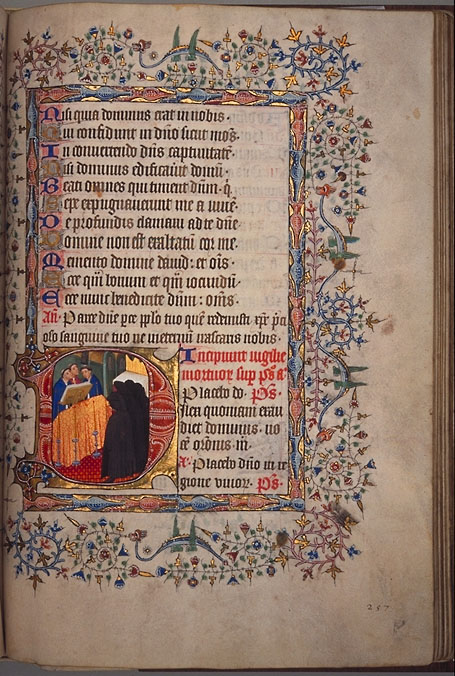 Nisi quia dominus erat in nobis.
Qui confidunt in dño sicut mõs.
In convertendo dñs captiuitatẽ.
Nisi dominus edificauit domũ.
Beati omnes qui timent dñm. q̃
Sepe expugnauerunt me a iuuẽ.
De profundis clamaui ad te dñe.
Domine non est exaltatũ cor me.
Memento domine dauid: et oĩs.
Ecce q̃ bonum et q̃ iocundũ.
Ecce nunc benedicite dñm: om̃s.
Añ. Parce dñe p̃ce pp̃lo tuo quẽ redemisti xp̃e p̃ci
oso sanguine tuo ne ineternũ irascaris nobis.
Incipiunt uigilie
mortuor sup p̃s a
Placebo do. Ps.
ilexi quoniam exau
diet dominus. uo
cẽ or̃onis. m̃.
a. Placebo dño in re
gione viuor. Ps.
257